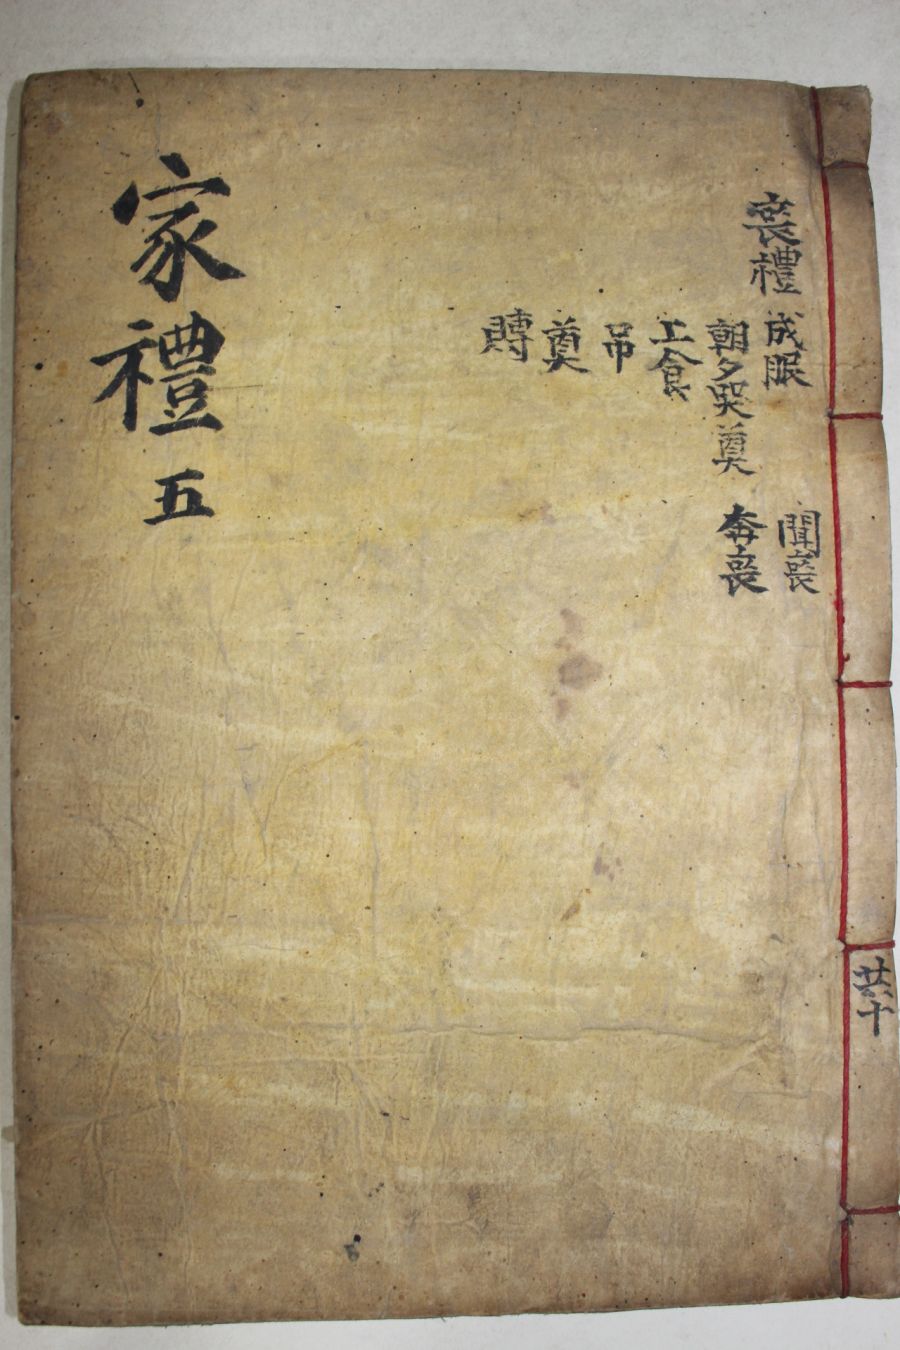 共十
喪禮
成服
聞喪
朝夕哭奠
奔喪
上食
吊
奠
賻
家禮 五